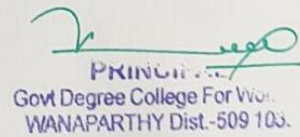 PRINCIPAL
Govt Degree College For Wo..
WANAPARTHY Dist.-509 103.